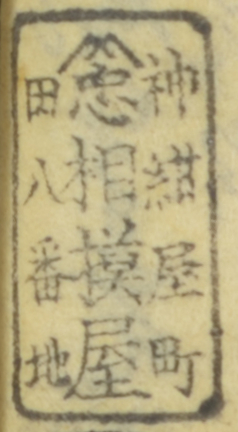 神紺屋町
忩相模屋
田八番地